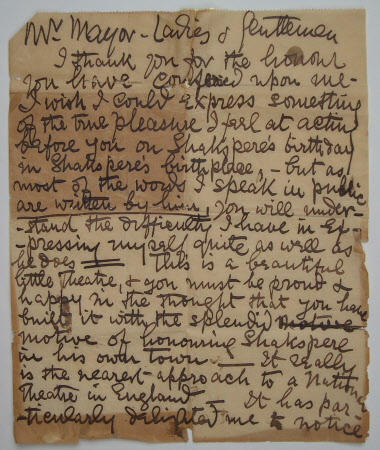 Mr Mayor - Ladies & Gentlemen
I thank you for the honour
you have conferred upon me -
I wish I could express something
of the true pleasure I feel at acting
before you on Shakspere's birthday
in Shakspere's birthplace, - but as
most of the words I speak in public
are written by him, you will under-
-stand the difficulty I have in ex-
-pressing myself quite as well as
he does This is a beautiful
little Theatre, & you must be proud &
happy in the thought that you have
built it with the splendid motive
motive of honouring Shakspere
in his own town. It really
is the nearest approach to a National
Theatre in England It has par-
-ticularly delighted me to notice